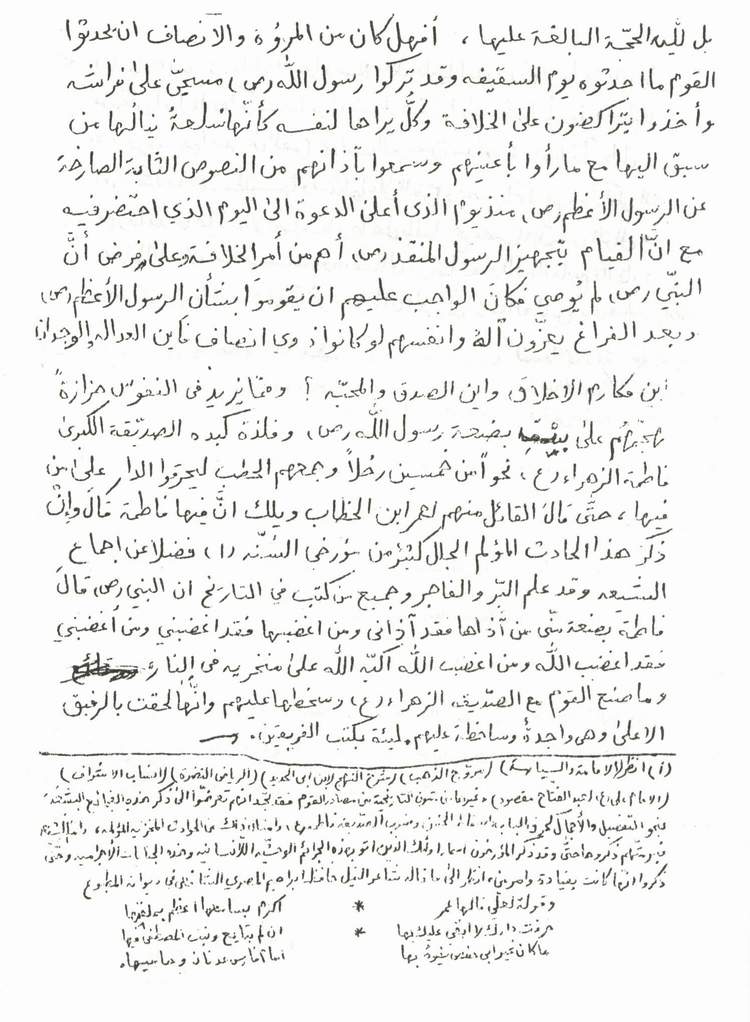 بل لله الحجّة البالغة عليها، أفهل كان من المروُة والانصاف ان يحدثوا
القوم ما احدثوه يوم السقيفه وقد تركوا رسول الله (ص) مسجىّ على فراشه
وأخذوا يتراكضون على الخلافة وكلٌ يراها لنفسه كأنّها سلعةٌ ينالها من
سبق اليها مع ما رأوا بأعينهم وسمعوا بآذانهم من النصوص الثابتة الصارخة
عن الرسول الأعظم (ص) منذ يوم الذى أعلن الدعوة الى اليوم الذي احتضر فيه
مع انَّ القيام بتجهيز الرسول المنقذ (ص) أهم من أمر الخلافة وعلى فرض أنَّ
النبّي (ص) لم يُوصي فكانَ الواجب عليهم ان يقوموا بشأن الرسول الأعظم (ص)
وبعد الفراغ يعزّون آله وانفسهم لو كانوا ذوي انصاف فأين العداله والوجدان
اين مكارم الاخلاق واين الصدق والمحبّه ؟ وممّا يزيد فى النفوس حزازةً
تهجّمهُم على بضعة رسول الله (ص) وفلذة كبده الصدّيقة الكبرى
فاطمة الزهراء (ع) نحواً من خمسين رجُلاً وجمعهم الحطب ليحرقوا الدار على من
فيها، حتَّى قالَ القائل منهم لعمر ابن الخطاب ويلك انَّ فيها فاطمة قالَ وإنْ
ذكرَ هذا الحادث المؤلم الجلل كثيرٌ من مؤرخي السُنّه (١) فضلاً عن اجماع
الشيعه وقد علم البرّ والفاجر وجميع من كتب في التاريخ ان النبي (ص) قالَ
فاطمة بضعة منّي من آذاها فقد آذانى ومن اغضبها فقد اغضبني ومن أغضبني
فقد اغضب الله ومن اغضب الله اكبّه الله على منخريه فى النار
وما صنع القوم مع الصدّيقه الزهراء (ع) وسخطها عليهم وانّها لحقت بالرفيق
الاعلى وهى واجدةٌ وساخطة عليهم مليئة بكتب الفريقين.
(١) انظر الامامة والسياسة) (مروّج الذهب) (شرح النهج لابن ابى الحديد) (الرياض النضرة) (انساب الاشراف)
(الامام على (ع) لعبد الفتاح مقصود) وغيرها من التاريخية من مصادر القوم فقد تجد امام تعرضوا الى ذكر هذه الفجائع
ذكروا انها كانت بقيادة وامر من انظر الى ما قاله شاعر النيل حافظ ابراهيم المصري فى ديوانه المطبوع
وقولة لعليّ قالها عمر * اكرم بسامعها اعظم بملقيها
حرقت دارك لا ابقي عليك بها * ان لم تبايع وبنت المصطفى فيها
ما كان غير ابى حفص يفوهُ بها امام فارس عدنان وحاميها